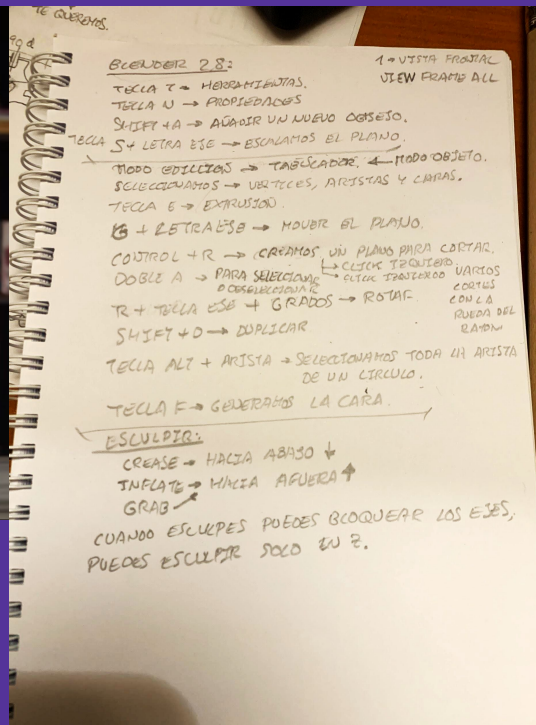 TE QUEREMOS.
BLENDER 2.8:
1 → VISTA FRONTAL
VIEW FRAME ALL
TECLA T → HERRAMIENTAS.
TECLA N → PROPIEDADES
SHIFT + A → AÑADIR UN NUEVO OBJETO.
TECLA S + LETRA EJE → ESCALAMOS EL PLANO.
MODO EDICIION → TABULADOR. ← MODO OBJETO.
SELECCIONAMOS → VERTICES, ARISTAS Y CARAS.
TECLA E → EXTRUSION.
G + LETRA EJE → MOVER EL PLANO.
CONTROL + R → CREAMOS UN PLANO PARA CORTAR.
→ CLICK IZQUIERO.
DOBLE A → PARA SELECIONAR → CLICK IZQUIERDO VARIOS
O DESELECCIONAR CORTES
R + TECLA EJE + GRADOS → ROTAR CON LA
RUEDA DEL
SHIFT + D → DUPLICAR RATON
TECLA ALT + ARISTA → SELECCIONAMOS TODA LA ARISTA
DE UN CIRCULO.
TECLA F → GENERAMOS LA CARA.
ESCULPIR:
CREASE → HACIA ABAJO ↓
INFLATE → HACIA AFUERA ↑
GRAB
CUANDO ESCULPES PUEDES BLOQUEAR LOS EJES,
PUEDES ESCULPIR SOLO EN Z.